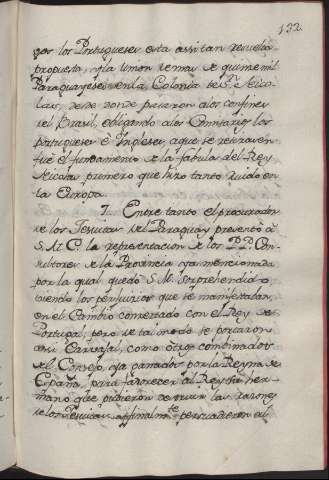 132
por los Portugueses esta assi tan resuelta
propuesta, y la union de mas de quince mil
Paraguayeses en la Colonia de Sn. Nico-
las, desde donde pasaron a los confines
del Brasil, obligando a los Comisarios los
portugueses è Ingleses, a que se retiraven
fuè el fundamento de la fabula del Rey
Nicolas primero que hizo tanto ruido en
la Europa.
7. Entre tanto el procurador
de los Jesuitas del Paraguay presentò à
S. M. C. la representacion de los P.P. Con-
sultores de la Provincia ya mencionada
por la qual quedò S. M. sorprehendido,
viendo los perjuicios que se manifestaban
en el Cambio comenzado con el Rey de
Portugal; pero de tal modo se portaron
assi Carvajal, como otros combinados
del Consejo, ya ganados por la Reyna de
España, para favorecer al Rey su her-
mano que pudieron arruinar las razones
de los Jesuitas, y finalmte. persuadieron al